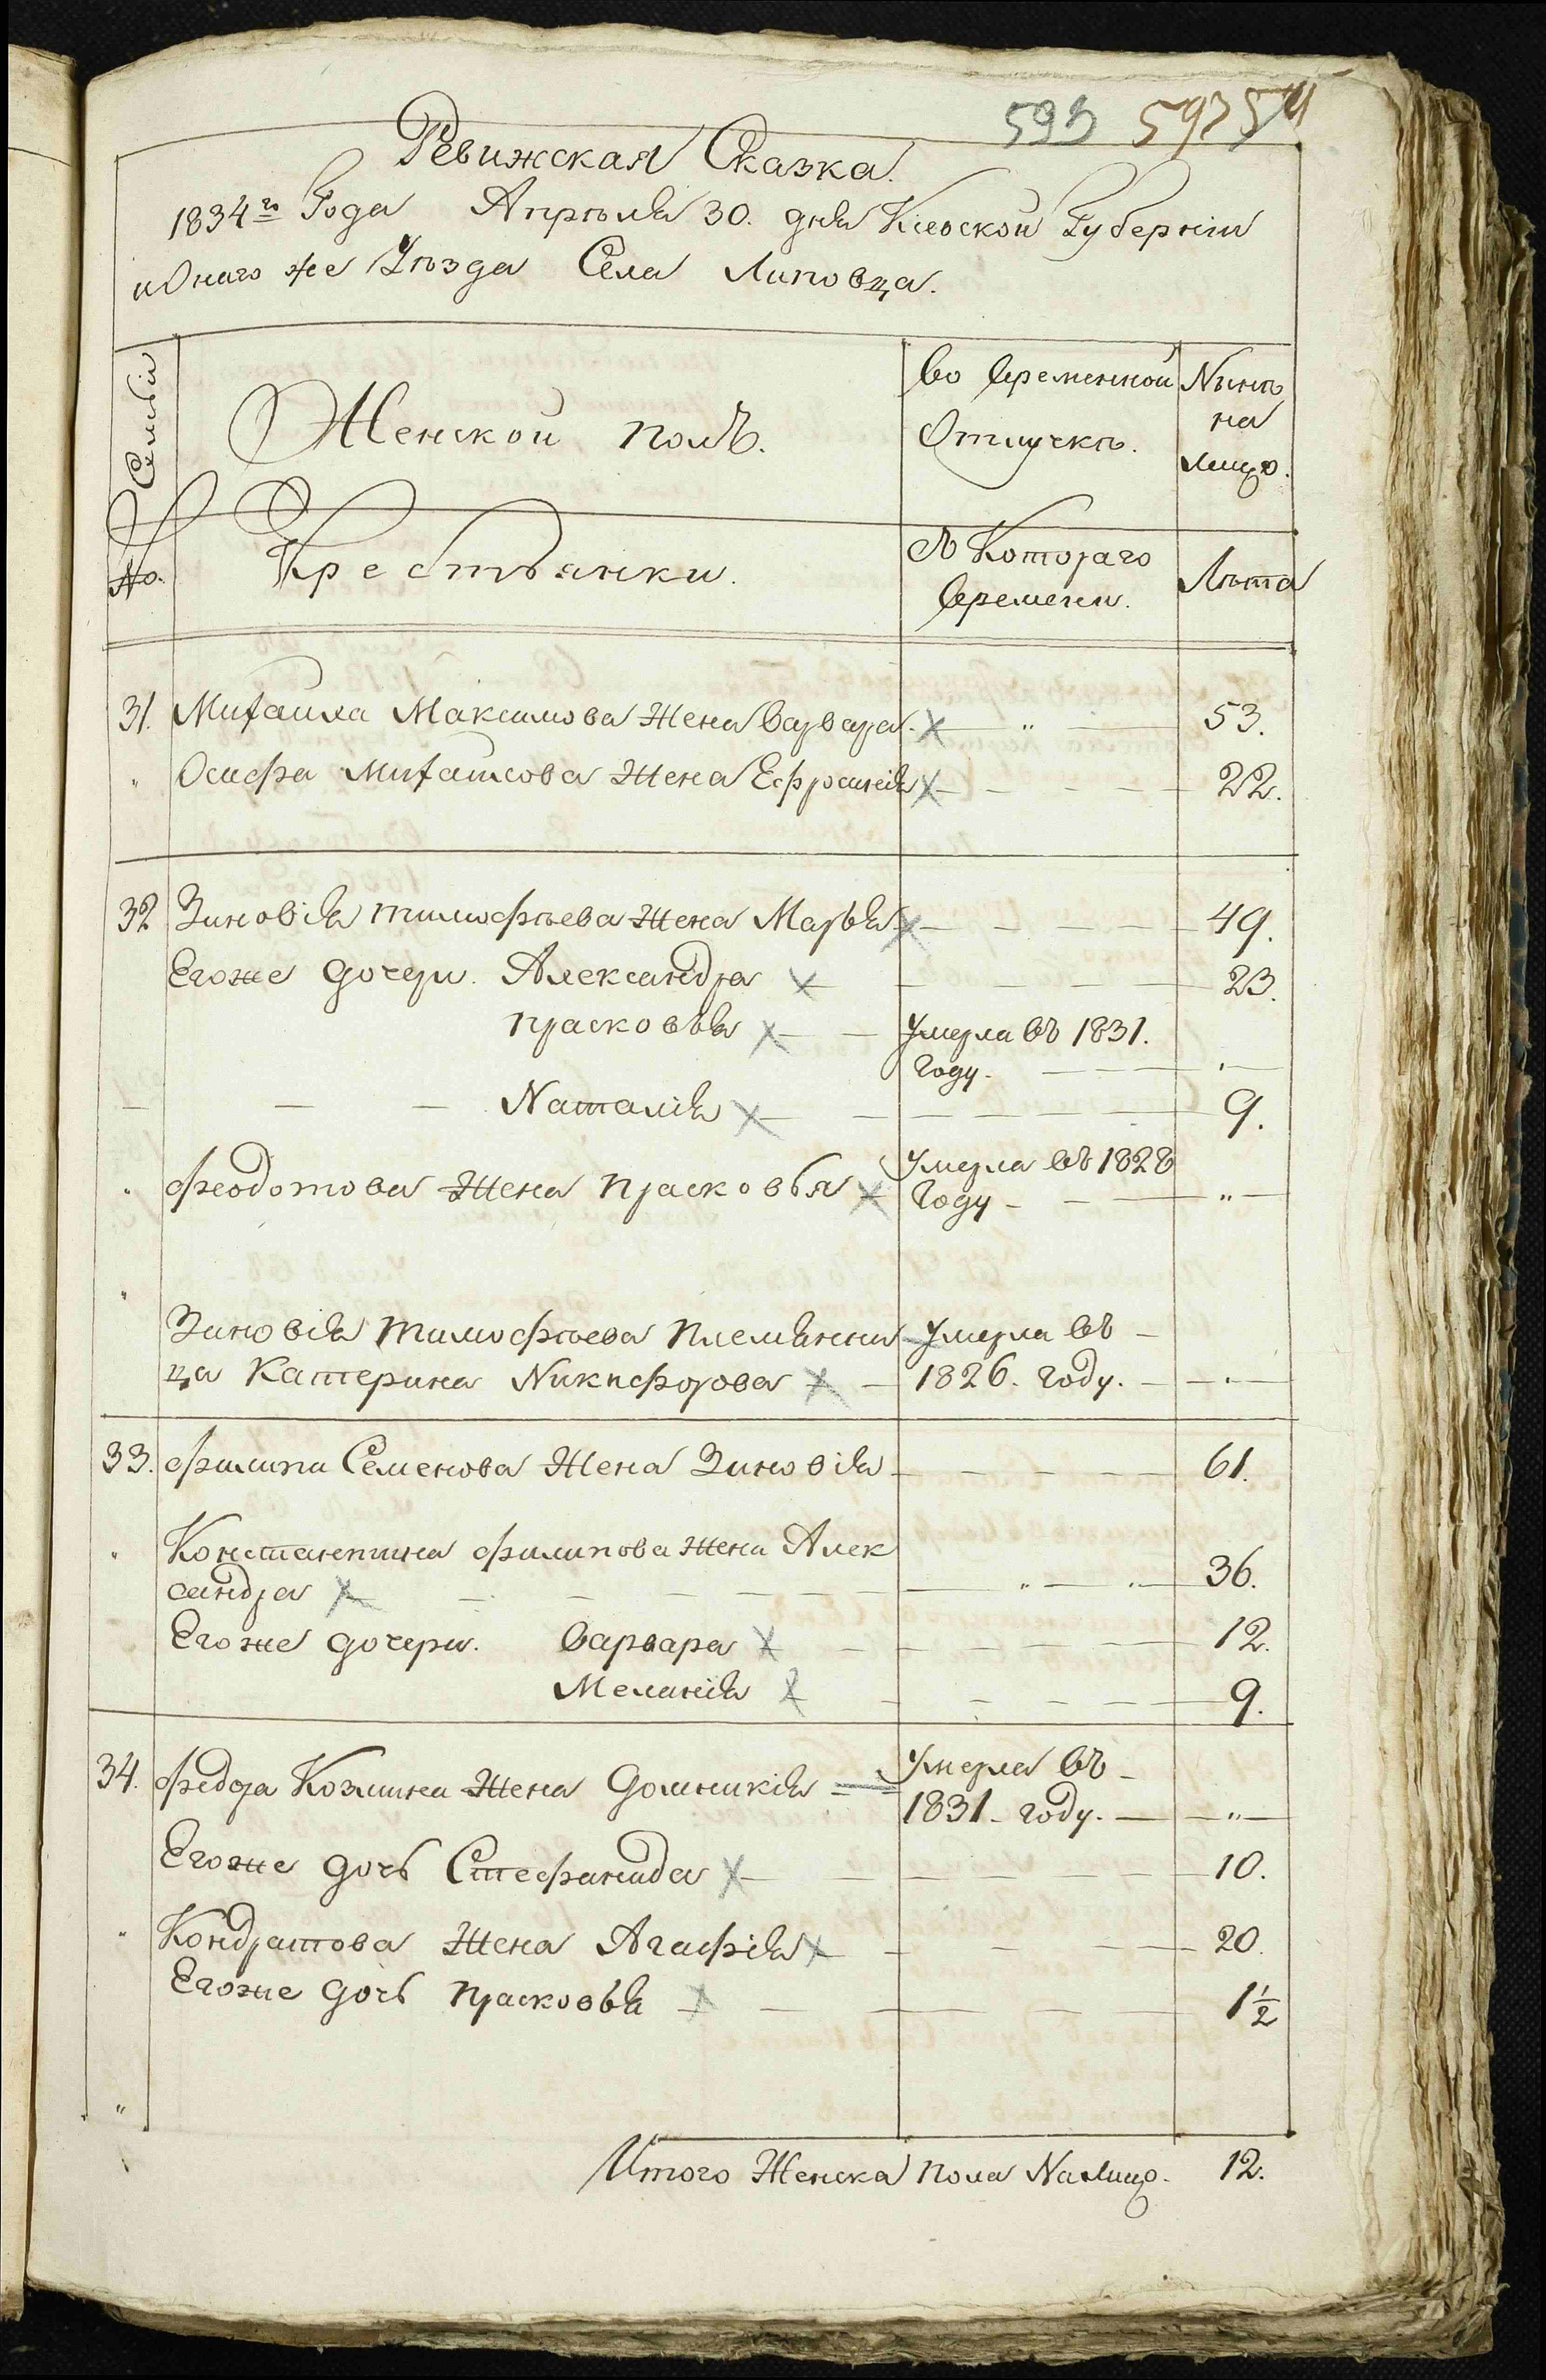 593 593 54
Ревижская Сказка.
1834го Года Апреля 30. дня Кіевской Губерніи
и Онаго же Уезда Села Липовца.
№ Семьи
Женской полъ.
Во временной Отлучке.
Ныне на лицо.
No.
Крестьянки.
Съ Котораго времени.
Лета
31. Михайла Максимова Жена Варвара. „ 53.
„ Осифа Михайлова Жена Ефросинія 22.
32 Зиновія тимофеева Жена Марья 49.
Егоже дочери. Александра 23.
прасковья Умерла въ 1831.
году.
Наталія 9.
„ феодотова Жена прасковья Умерла въ 1828
Году „
„
Зиновія тимофеева племянни Умерла въ
ца Катерина Никифорова 1826. году.
33. филипа Семенова Жена Зиновія 61.
„ Константина филипова жена Алек
сандра „ „ 36.
Егоже дочери. варвара 12.
Меланія 9.
34. федора Козмина Жена Домникія Умерла въ
1831 году. „
Егоже дочь Стефанида 10.
„ Кондратова Жена Агафія 20.
Егоже дочь прасковья 1½
„
Итого Женска пола На лицо. 12.